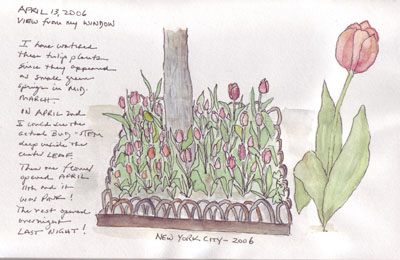 APRIL 13, 2006
VIEW from my WINDOW
I have watched
these tulip plants
since they appeared
as small green
sprigs in MID-
MARCH.
ON APRIL 2nd
I could see the
actual Bug - STEM
deep inside the
center LEAF.
Then one flower
opened APRIL
11th and it
was PINK!
The rest opened
overnight
LAST NIGHT!
NEW YORK CITY - 2006